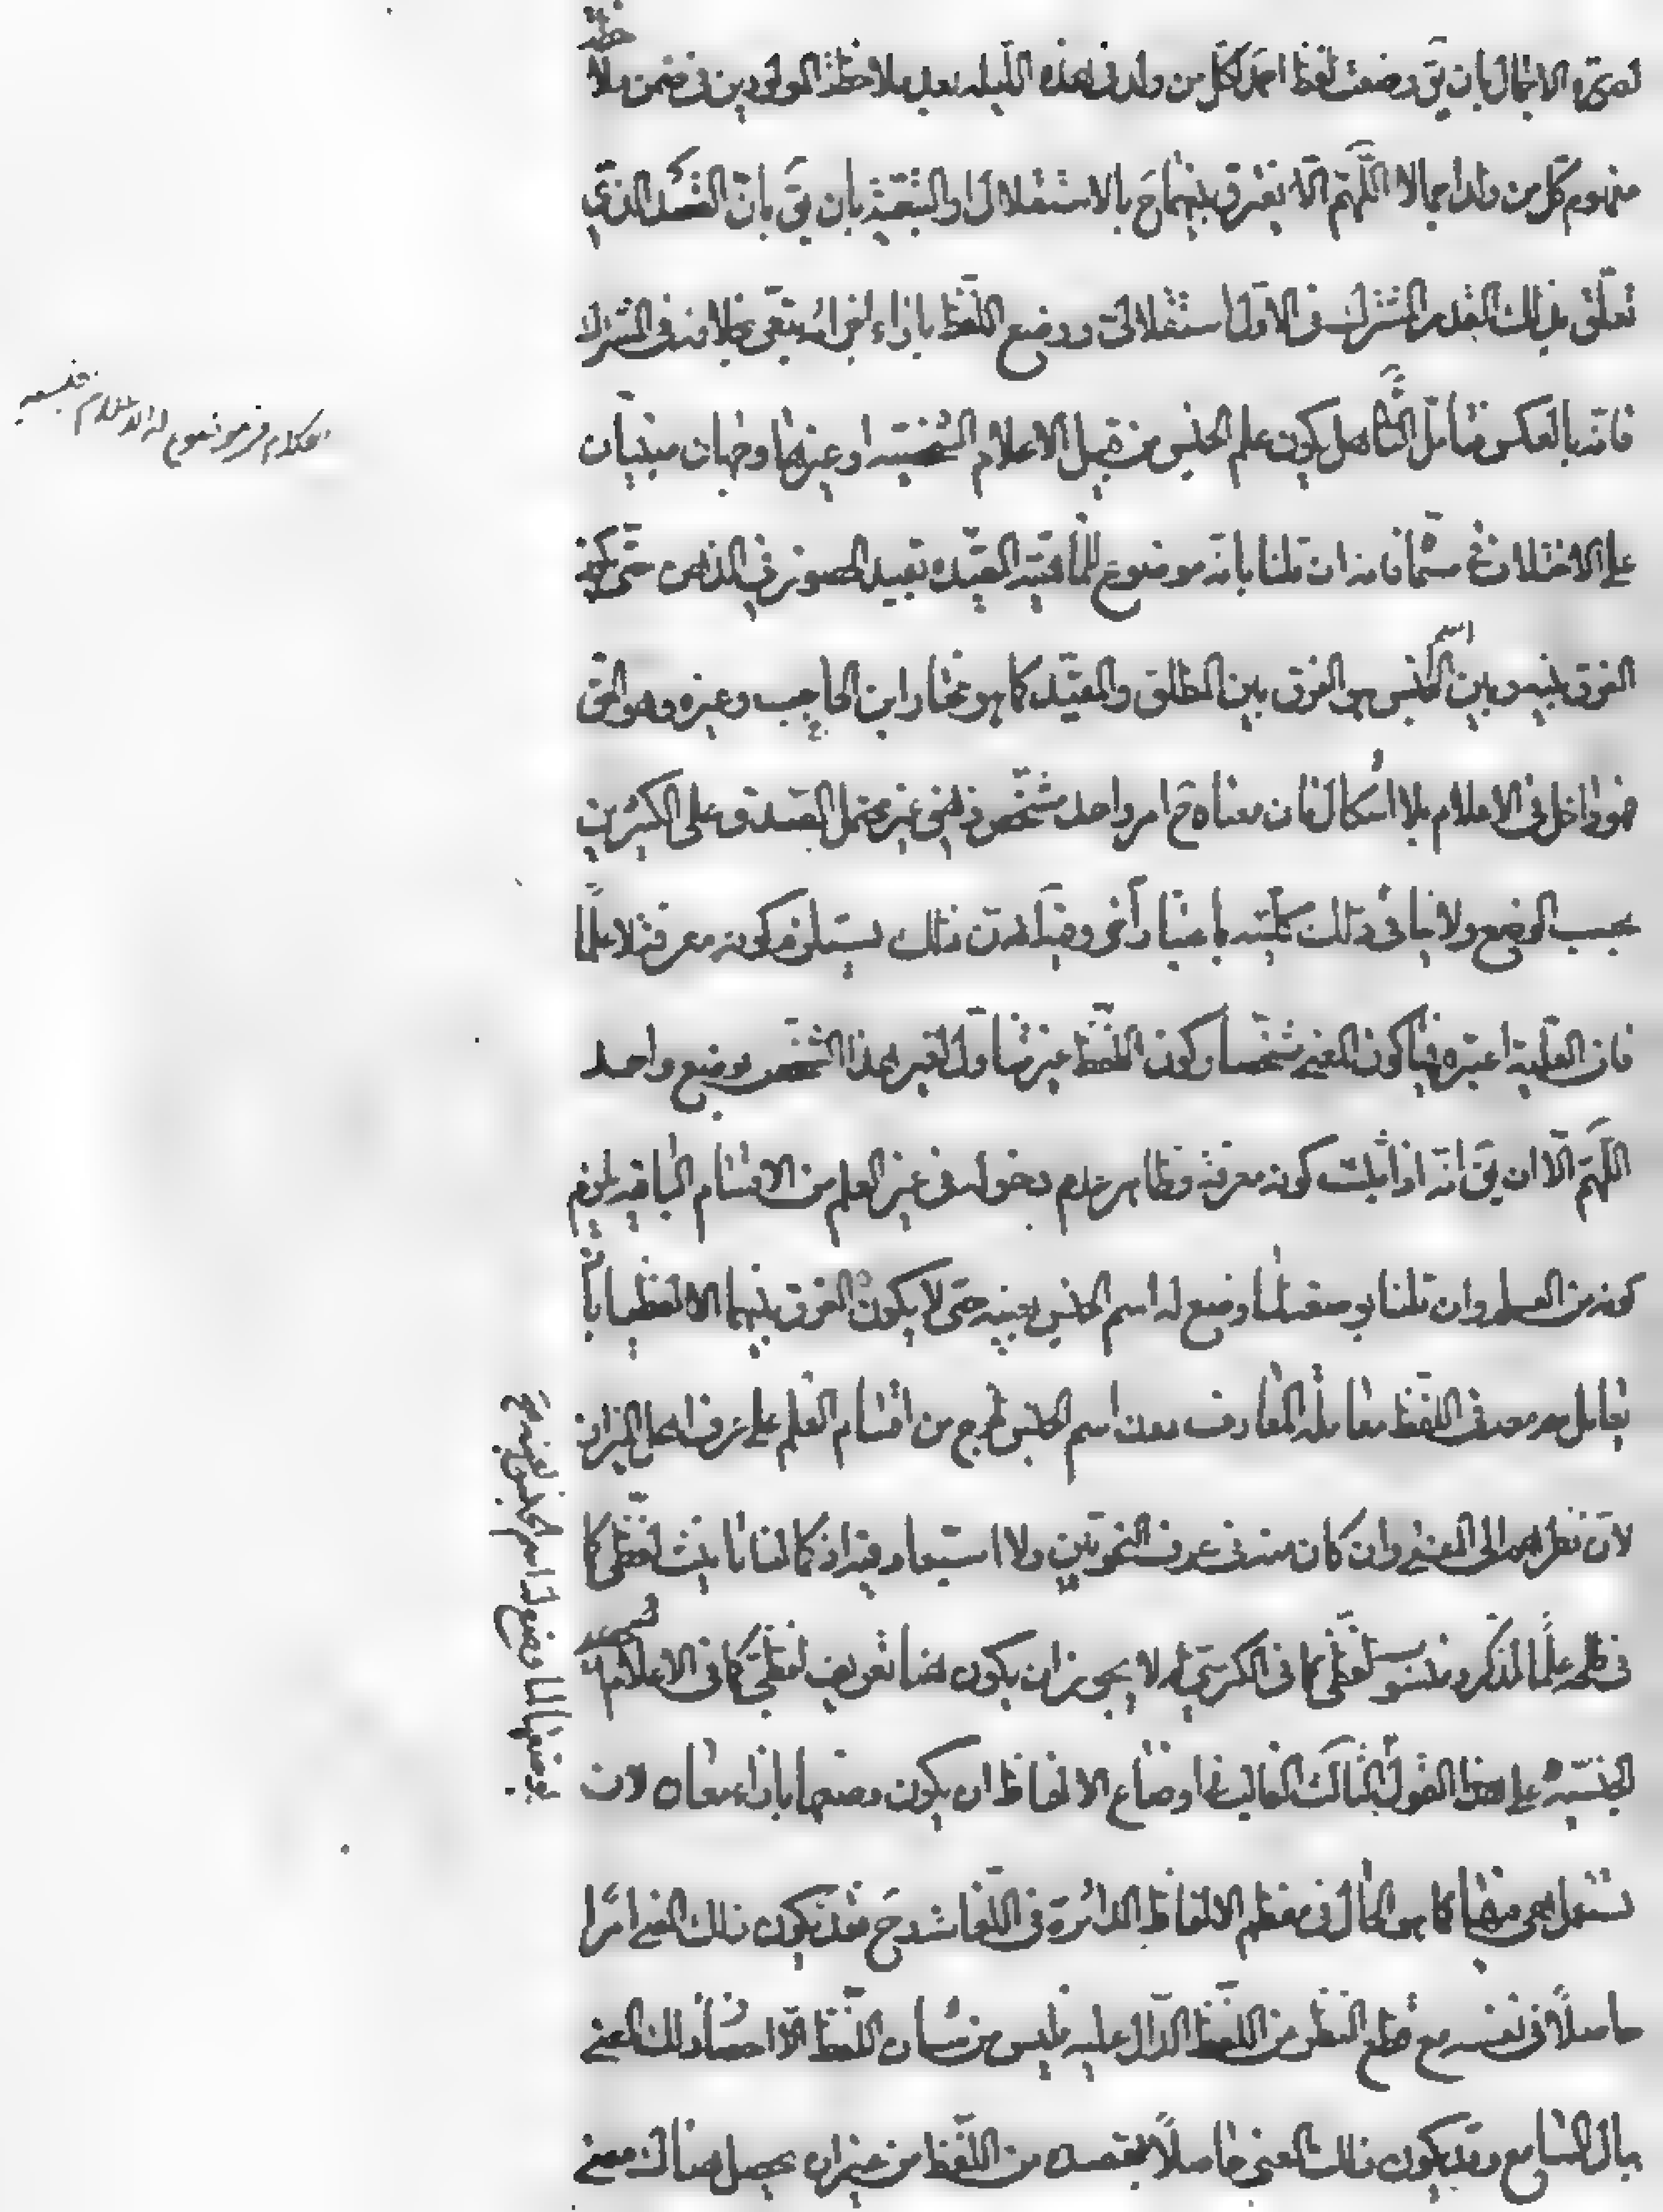 لصورة الاجمال بان يق وضعت لفظ احمد لكل من ولد فى هذه الليله بعد ملاحظة المولودين فى ضمن ملاحظة
مفهوم كل من ولد اجمالا اللّهمّ الّا يفرق بينهما ح بالاستقلال والتبعيّة بان يق بانّ القصد الذي
تعلّق بذلك القدر المشترك فى الاول استقلالى ووضع اللّفظ بازاء الجزئى تبعى بخلافه فى المشترك
فانّه بالعكس فتأمّل الثّانى هل يكون علم الجنس من قبيل الاعلام الشّخصيّه او غيرها وجهان مبنيان
على الاختلاف فى مسمّاه فانه ان قلنا بانّه موضوع للماهيّة المقيّده بقيد الحضور فى الذهن حتى يكون
الفرق بينه وبين اسم الجنس هو الفرق بين المطلق والمقيّد كما هو مختار ابن الحاجب وغيره وهو الحق
فهو داخل فى الاعلام بلا اشكال فان معناه ح امر واحد مشخّص ذهنى غير محتمل الصدق على الكثيرين
بحسب الوضع ولا ينافى ذلك كلّيته باعتبار آخر وفيه انّ ذلك يستلزم كونه معرفة لا علمًا
فان العلمية اعتبر فيها كون المعنى شخصا وكون اللّفظ غير متناول لغير هذا الشخص بوضع واحد
اللّهمّ الّا ان يق انّه اذا ثبت كونه معرفة وظاهر عدم دخوله فى غير العلم من الاقسام الباقيه لزم
كونه من العلم وان قلنا بوضعه لما وضع له اسم الجنس بعينه حتى لا يكون الفرق بينهما الا لفظيا بان
يعامل معه فى اللفظ معاملة المعارف دون اسم الجنس خرج من اقسام العلم على عرف اهل الميزان
لانّ نظرهم الى المعنى وان كان منه فى عرف النحويين ولا استبعاد فيه اذ كما لنا تانيث لفظى كما
فى طلحه علمًا لمذكر ومنسوب لفظى كما فى الكرسى لم لا يجوز ان يكون هنا تعريف لفظى كما فى الاعلام
الجنسيّه على هذا القول الثالث الغالب فى اوضاع الالفاظ ان يكون وضعها بازاء معان لان
تستعمل هى فيها كما هو الحال فى معظم الالفاظ الدائرة فى اللّغات وح فقد يكون ذلك المعنى امرًا
حاصلًا فى نفسه مع قطع النظر عن اللّفظ الدّال عليه فليس من شان اللّفظ الّا احضار ذلك المعنى
ببال السّامع وقد يكون ذلك المعنى حاصلًا بقصده من اللّفظ من غير ان يحصل هناك معنى
بوضعها لما وضع له اسم الجنس بعينه ح